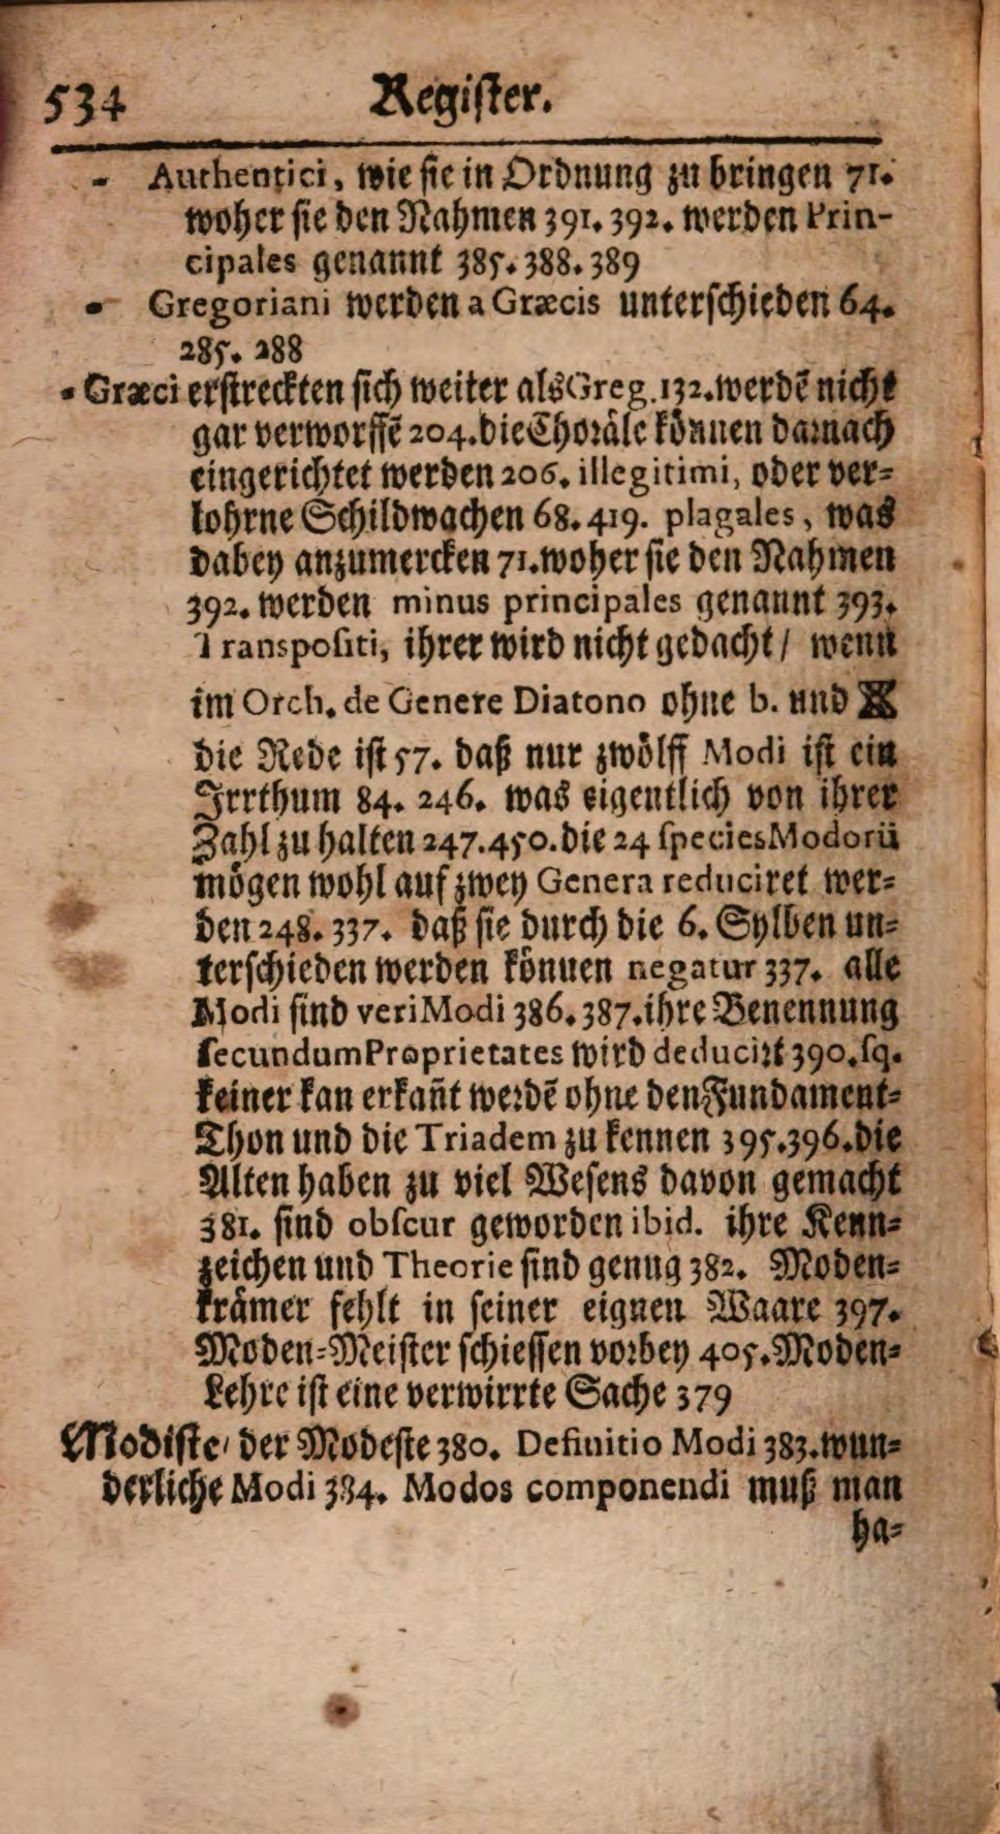 534 Register.
- Authentici, wie sie in Ordnung zu bringen 71.
woher sie den Nahmen 391. 392. werden Prin-
cipales genannt 385. 388. 389
- Gregoriani werden a Græcis unterschieden 64.
285. 288
- Græci erstreckten sich weiter als Greg. 132. werdē nicht
gar verworffē 204. die Choräle können darnach
eingerichtet werden 206. illegitimi, oder ver=
lohrne Schildwachen 68. 419. plagales, was
dabey anzumercken 71. woher sie den Nahmen
392. werden minus principales genannt 393.
Transpositi, ihrer wird nicht gedacht / wenn
im Orch. de Genere Diatono ohne b. und ⌗
die Rede ist 57. daß nur zwölff Modi ist ein
Irrthum 84. 246. was eigentlich von ihrer
Zahl zu halten 247. 450. die 24 species Modorū
mögen wohl auf zwey Genera reduciret wer=
den 248. 337. daß sie durch die 6. Sylben un=
terschieden werden können negatur 337. alle
Modi sind veri Modi 386. 387. ihre Benennung
secundum Proprietates wird deducirt 390. sq.
keiner kan erkañt werdē ohne den Fundament=
Thon und die Triadem zu kennen 395. 396. die
Alten haben zu viel Wesens davon gemacht
381. sind obscur geworden ibid. ihre Kenn=
zeichen und Theorie sind genug 382. Moden=
krämer fehlt in seiner eignen Waare 397.
Moden=Meister schiessen vorbey 405. Moden=
Lehre ist eine verwirrte Sache 379
Modiste / der Modeste 380. Definitio Modi 383. wun=
derliche Modi 384. Modos componendi muß man
ha=